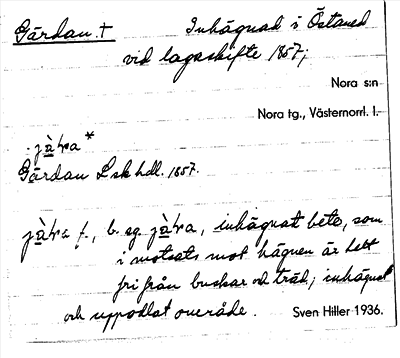 Gärdan. † Inhägnad i Östaned
vid lagaskifte 1857;
Nora s:n
Nora tg., Västernorrl. l.
jà̱ɽa *
Gärdan L sk hdl. 1857.
jà̱ɽa f., b. sg. jà̱ɽa, inhägnat bete, som
i motsats mot hägnen är helt
fri från buskar och träd; inhägnat
och uppodlat område. Sven Hiller 1936.